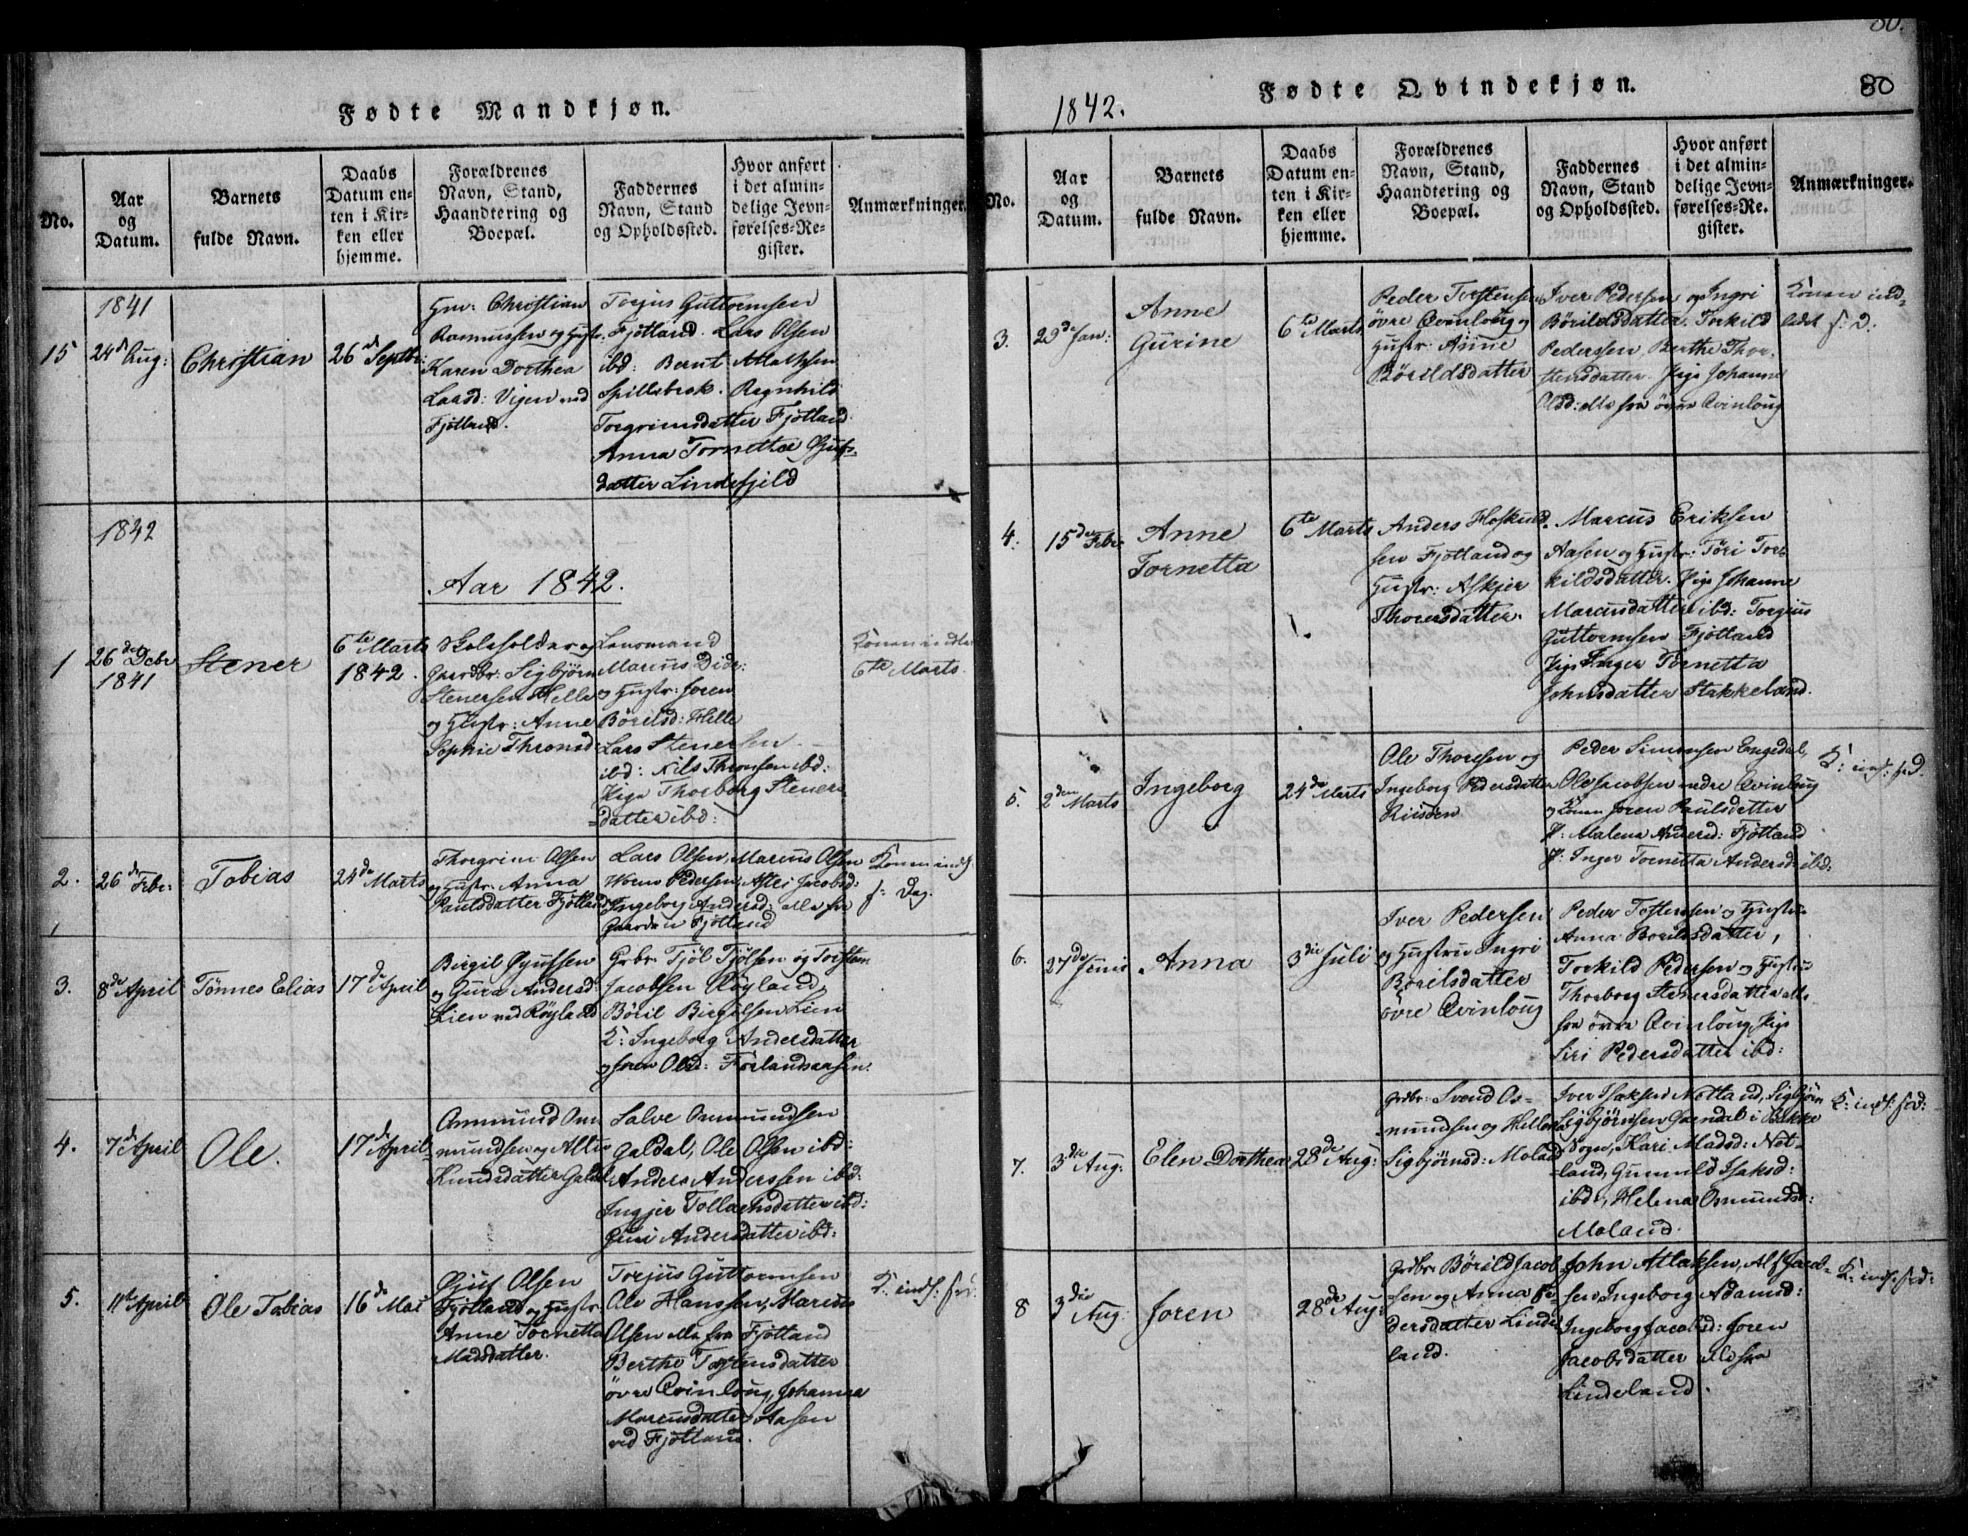 80.
80
Fødte Mandkjøn.
No.
Aar
og
Datum.
Barnets
fulde Navn.
Daabs
Datum en-
ten i Kir-
ken eller
hjemme.
Forældrenes
Navn, Stand,
Haandtering og
Boepæl.
Faddernes
Navn, Stand
og Opholdssted.
Hvor anført
i det almin-
delige Jevn-
førelses-Re-
gister.
Anmærkninger.
1841
15
24de Aug:
Christian
26de Septbr:
Gmr: Christian
Rasmussen og Hustr.
Karen Dorthea
Laasd: Vigen ved
Fjotland.
Torjus Guttormsen
Fjotland. Lars Olsen
ibd: Bernt Atlaksen
Spillebrok. Ragnhild
Torgrimsdatter Fjotland
Anna Tornettæ Gjufs-
datter Lindefjeld
1842
Aar 1842.
1
26de Debr
1841
Stener
6te Marts
1842.
Skoleholder og
Gaardbr: Sigbjørn
Stenersen Helle
og Hustr: Anne
Sophie Thronsd:
Lensmand
Marcus Didr:
og Hustr: Joren
Børilsd: Helle
Lars Stenersen
ibd: Nils Thronsen ibd:
Pige Thorborg Steners
datter ibd:
Konen indled
6te Marts.
2.
26de Febr:
Tobias
24de Marts
Thorgrim Olsen
og Hustr: Anna
Paulsdatter Fjotland
Lars Olsen, Marcus Olsen
Woren Pedersen, Astei Jacobsd:
Ingeborg Andersd: alle fra
Gaarden Fjotland
Konen indl.
f: Dag.
3.
8de April
Tønnes Elias
17de April
Birgil Gjufssen
og Gura Andersd
Lien ved Røyland
Grbr. Tjøl Tjølsen og Torsten
Jacobsen Røyland,
Børil Birgilsen Lien
K: Ingeborg Andersdatter
og Joren Olsd: Førlandsaasen.
4.
7de April
Ole.
17de April
Ommund Om
mundsen og Alti
Knudsdatter Galdal
Salve Ommundsen
Galdal, Ole Olsen ibd:
Anders Anderssen ibd:
Ingjer Tollachsdatter ibd:
Guri Andersdatter ibd:
5.
11te April
Ole Tobias
16de Mai
Gjuf Olsen
Fjotland og Hustr:
Anne Tornetta
Madsdatter.
Torjus Guttormsen
Ole Hanssen, Marcus
Olsen alle fra Fjotland
Berthe Torstensdatter
øvre Qvinloug, Johanna
Marcusdatter Aasen
ved Fjotland.
K: indl: s: D.
1842.
Fødte Qvindekjøn.
No.
Aar
og
Datum.
Barnets
fulde Navn.
Daabs
Datum en-
ten i Kir-
ken eller
hjemme.
Forældrenes
Navn, Stand,
Haandtering og
Boepæl.
Faddernes
Navn, Stand
og Opholdssted.
Hvor anført
i det almin-
delige Jevn-
førelses-Re-
gister.
Anmærkninger.
3.
29de Jan:
Anne
Gurine
6te Marts
Peder Torstensen
øvre Qvinloug og
Hustr: Anne
Børildsdatter
Iver Pedersen og Ingri
Børildsdatter. Torkild
Pederssen, Berthe Thor-
stensdatter. Pige Johanne
Olsd: alle fra øvre Qvinloug
Konen ind-
ledet s: D:
4.
15de Febr:
Anne
Tornetta
6te Marts
Anders Hoskuld-
sen Fjotland og
Hustr: Askjer
Thoresdatter.
Marcus Eriksen
Aasen og Hustr: Tori Tor-
kildsdatter. Pige Johanne
Marcusdatter ibd: Torgius
Guttormsen Fjotland
Pige Inger Tornetta
Johnsdatter Stakkeland.
5.
2den Marts
Ingeborg
24de Marts
Ole Thoresen og
Ingeborg Pedersdatter
Risden
Peder Simonsen Engedal,
Ole Jacobsen nedre Qvinloug
og Kone Joren Paulsdatter
P: Malena Andersd: Fjotland
P: Inger Tornetta Andersd: ibd:
K: indl: s: D.
6.
27de Junii
Anna
3die Juli
Iver Pedersen
og Hustru Ingri
Børilsdatter
øvre Qvinloug
Peder Tostensen og Hustru
Anna Borilsdatter,
Torkild Pedersen og Hustru
Thorborg Stenersdatter alle
fra øvre Qvinloug, Pige
Siri Pedersdatter ibd:
7.
3die Aug:
Elen Dorthea
28de Aug:
Grdbr: Svend Os-
mundsen og Hellen
Sigbjørnsd: Moland
Iver Isaksen Netland, Sigbjørn
Sigbjørnsen Grendal i Bakke
Sogn, Kari Madsd: Net-
land, Gunnild Isaksd:
ibd:, Helena Osmundsd:
Moland.
K: indl: s: D:
8
3die Aug:
Joren
28de Aug:
Grdbr: Børild Jacob
sen og Anna Pe-
dersdatter Linde-
land.
John Atlaksen, Alf Jacob-
sen, Ingeborg Adamsd:
Ingeborg Jacobsd: Joren
Jacobsdatter alle fra
Lindeland.
K: indl: s: D: